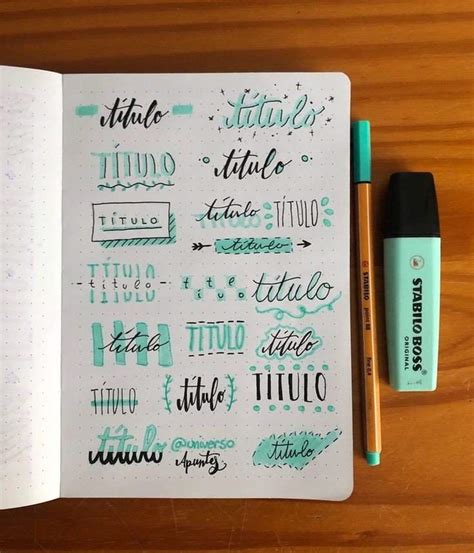 título título
TÍTULO título
TÍTULO título TÍTULO
título
TÍTULO
título título título
título TÍTULO título
TÍTULO título TÍTULO
título @universo Apuntes título
STABILO point 88
STABILO BOSS
ORIGINAL